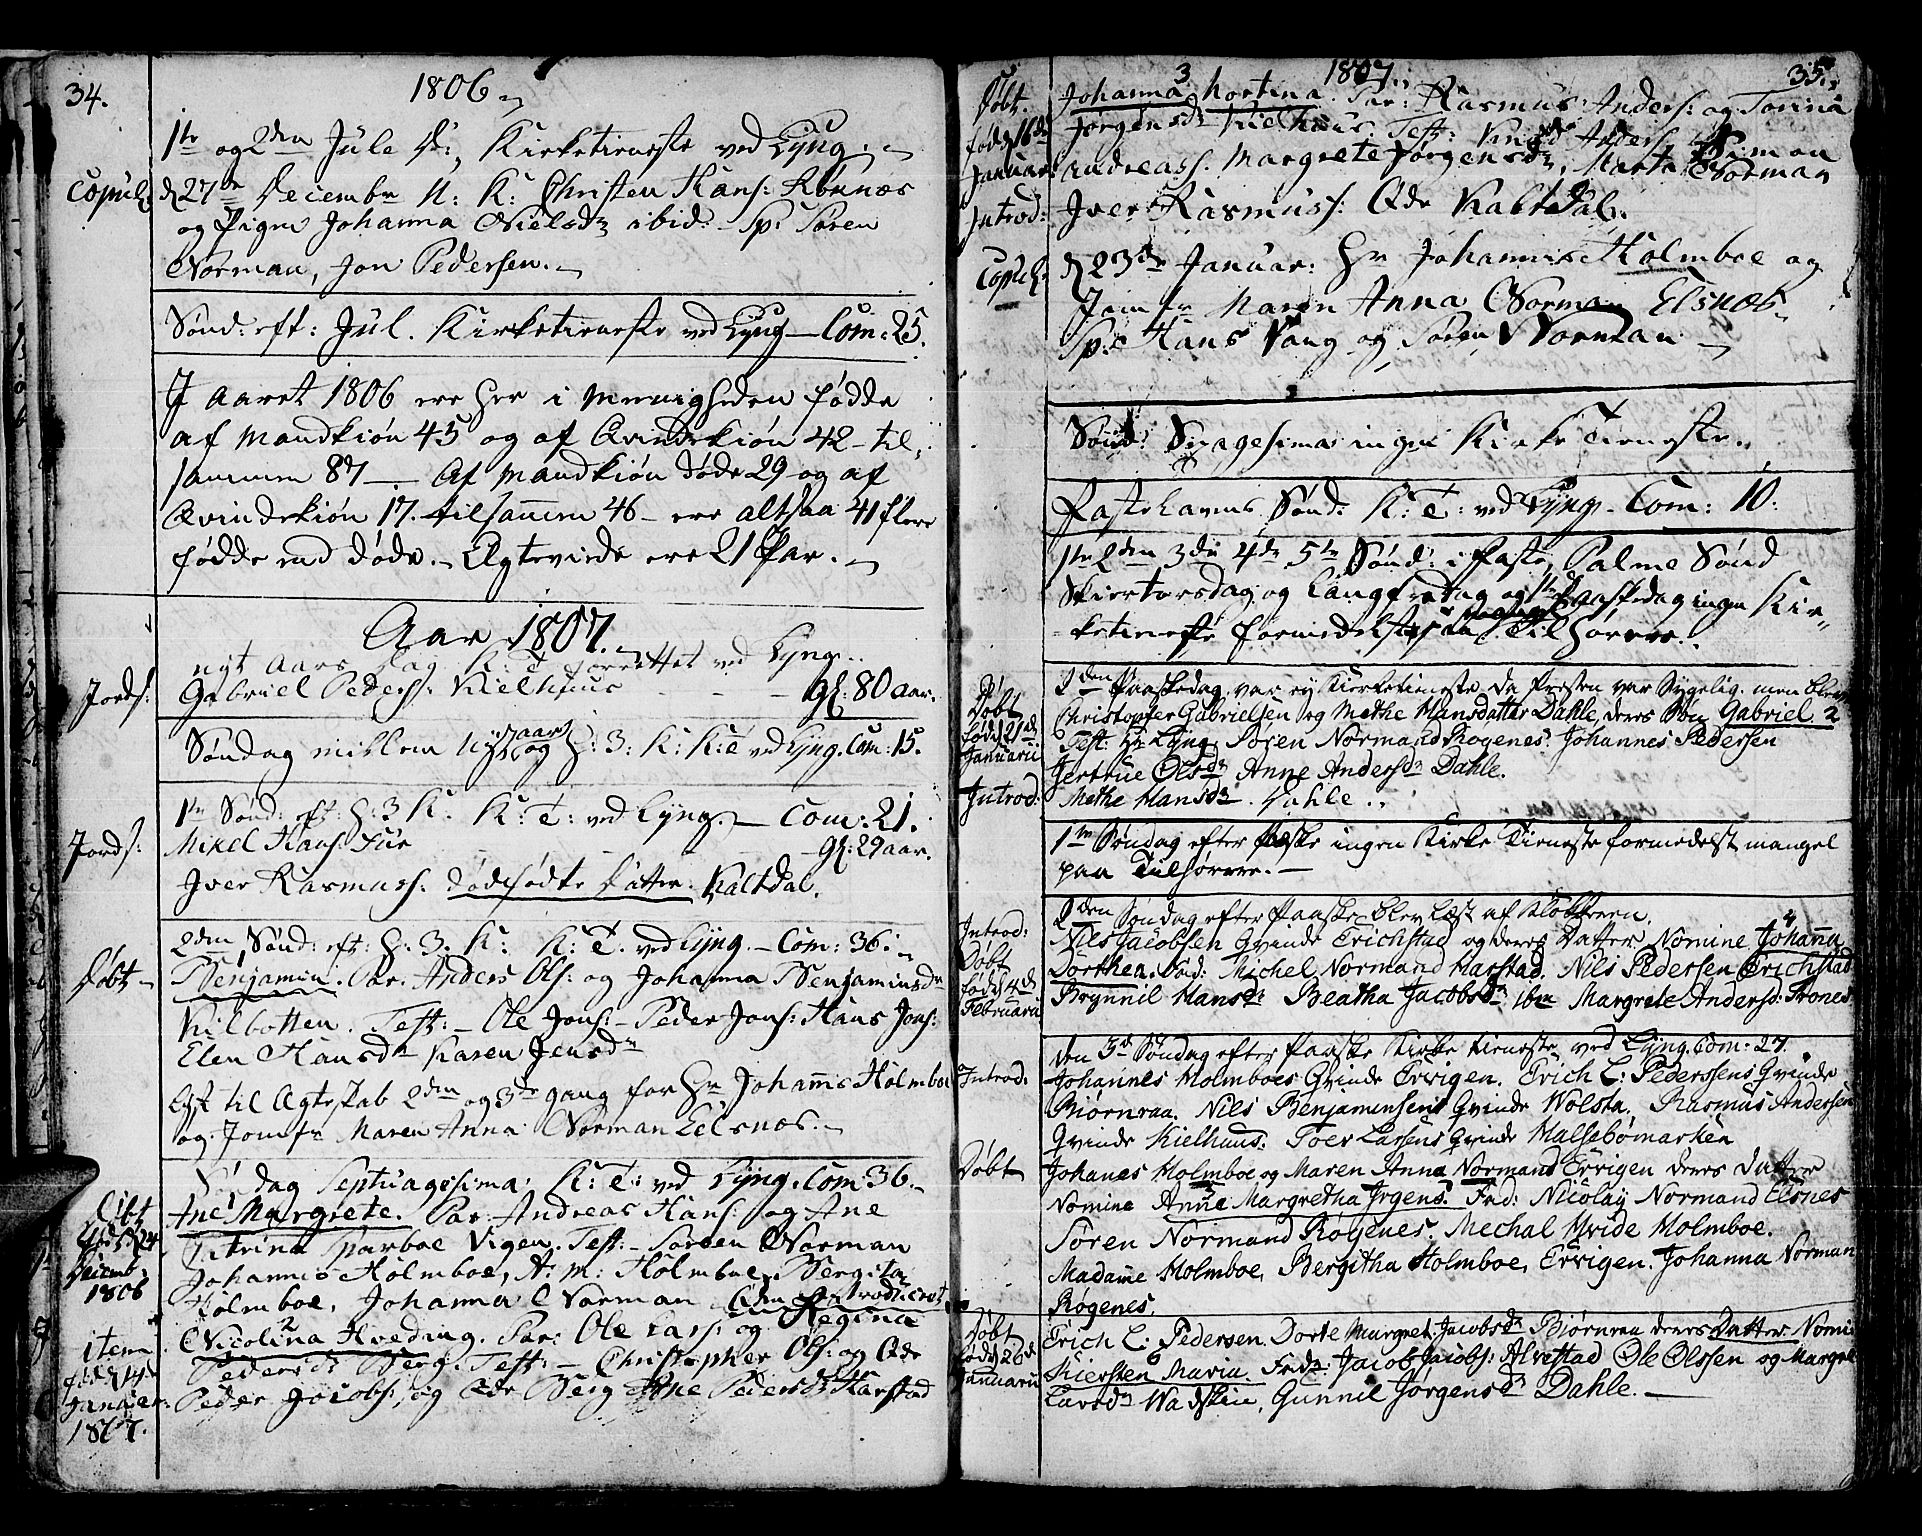 34.
1806
1te og 2den Jule D: Kirketieneste ved Lyng.
Copul: d 27de Decembr U: K: Christen Hans: Abunæs
og Pigen Johanna Nielsdr ibid: Sp: Søren
Norman, Jon Pedersen.
Sønd: eft: Jul. Kirketieneste ved Lyng — Com: 25.
I Aaret 1806 ere her i Menigheden fødde
af Mandkiøn 45 og af Qvindekiøn 42 - til,
sammen 87 —. Af Mandkiøn døde 29 og af
Qvindekiøn 17. tilsamen 46 - ere altsaa 41 flere
fødde end døde. Ægteviede ere 21 Par.
Aar 1807.
nyt Aars Dag K: T forrettet ved Lyng.
Jords: Gabriel Peders: Kielhuus - - - Gl: 80 aar.
Søndag mellem Nyt aar og H: 3: K: K: T ved Lyng. Com: 15.
1te Sønd: eft: H: 3 K: K: T: ved Lyng. — Com: 21.
Jords: Mikel Hans: Fur - - - Gl: 29 aar.
Iver Rasmuss: dødfødte Datter: Kaltdal.
2den Sønd: eft: H: 3. K: K: T. ved Lyng. — Com: 36.
Døbt - Benjamin. Par. Anders Ols: og Johanna Benjaminsdr
Kilbotten. Test: - Ole Jons: - Peder Jons: Hans Jons:
Elen Hansdr Karen Jensdr
Lyst til Ægteskab 2den og 3de gang for Hr Johannis Holmboe
og Jomfr Maren Anna Norman Elsnæs. -
Søndag Septuagesima: K: T: ved Lyng. Com: 36.
Døbt Ane Margrete. Par: Andreas Hans: og Ane
født 24 Petrina Parboe Vigen. Test: - Søren Norman
Decemb: Johannis Holmboe, A: M: Holmboe, Bergita
1806 Holmboe, Johanna Norman. Eadem Introducerat
item Nicolina Hveding. Par: Ole Lars: og Regina
født 14de Pedersdr Berg. Test: - Christopher Ols: og Ode
Januar: Peder Jacobs: og Ode Berg Ane Pedersdr Harstad
1807.
1807. 35.
Døbt. Johanna Mortina. Par: Rasmus Anders: og Torina
fød d 16de Jørgensdr Kielhuus. Test: Anders Simon
Januar: Andreass. Margrete Jørgensdr, Marta Norman
Introd: Iver Rasmuss: Ode Kaltdal.
Copul: d 23de Januar: Hr Johannis Holmboe og
Jomfr Maren Anna Norman Elsnæs.
Sp: Hans Vang og Søren Norman
Sønd: Sexagesima ingen Kirke Tieneste.
Fastelavns Sønd: K: T: ved Lyng - Com: 10.
1te 2den 3die 4de 5te Sønd: i Faste, Palme Sønd
Skiertorsdag og Langfredag og 1te Paaskedag ingen Kir-
ketieneste formedelst mangel paa Tilhørere.
2den Paaskedag var ey Kierketieneste da Præsten var Sygelig. men blev
Døbt Christopfer Gabrielsen og Methe Hansdatter Dahle, deres Søn Gabriel. 2
fød d 21de Test: Hr Lyng, Søren Normand Røgenes. Johannes Pedersen
Januarii Jertrue Olsdr Anne Andersdr Dahle.
Introd: Methe Hansdr. Dahle.
1te Søndag efter Paaske ingen Kirke Tieneste formedelst mangel
paa Tilhørere. —
2den Søndag efter Paaske blev Læst af Klokkeren.
Introd: Nils Jacobsen Qvinde Erichstad og deres Datter Nomine Johanna
Døbt Dorthea. Fad: Michel Normand Harstad. Nils Pedersen Erichstad
fød d 4de Brynnil Hansdr Beatha Jacobsdr ibm Margrete Andersd: Trones
Februarii
Den 3de Søndag efter Paaske Kirke tieneste ved Lyng. Com: 27.
Introd: Johannes Holmboes Qvinde Ervigen. Erich L: Pederssens Qvinde
Biørnraa. Nils Benjaminsens Qvinde Wolsta. Rasmus Andersen
Qvinde Kielhuus. Toer Larsens Qvinde Halsebømarken
Døbt Johanes Holmboe og Maren Anna Normand Ervigen deres Datter
Nomine Anne Margretha Irgens. Fad: Nicolay Normand Elsnes
Søren Normand Røgenes. Mechal Hvide Holmboe.
Madame Holmboe, Bergitha Holmboe, Ervigen. Johanna Norman
Røgenes.
Døbt Erich L: Pedersen. Dorte Margret: Jacobsdr Biørnraa deres Datter Nomi
fød d 26de Kiersten Maria. Fadr Jacob Jacobs: Alvestad Ole Olssen og Margre
Januarii Larsdr Wadskin, Gunnil Jørgensdr Dahle. —